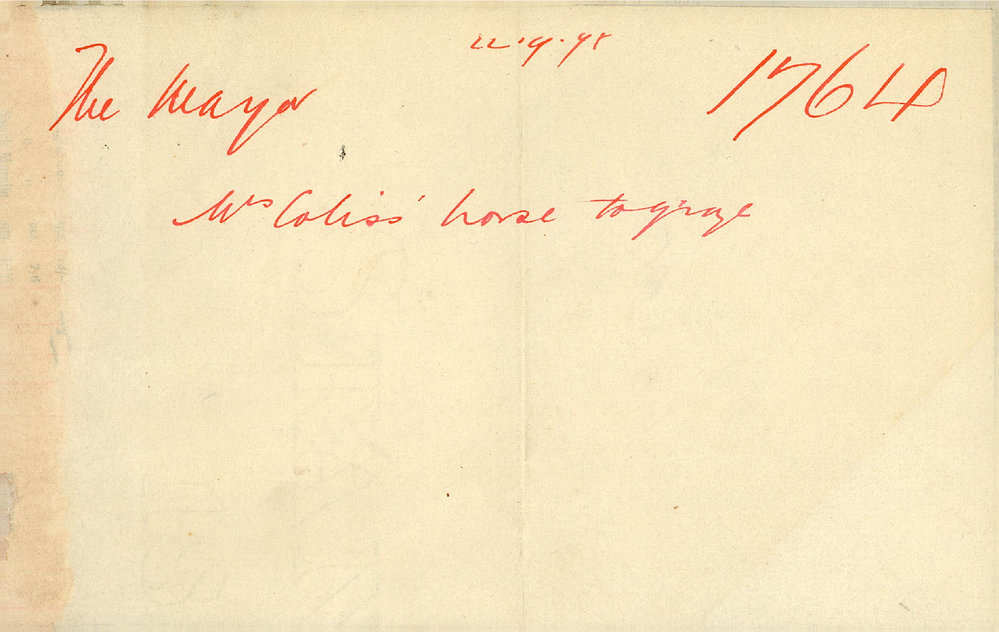 22.9.98
The Mayor
1764
Mrs Coliss' horse to graze